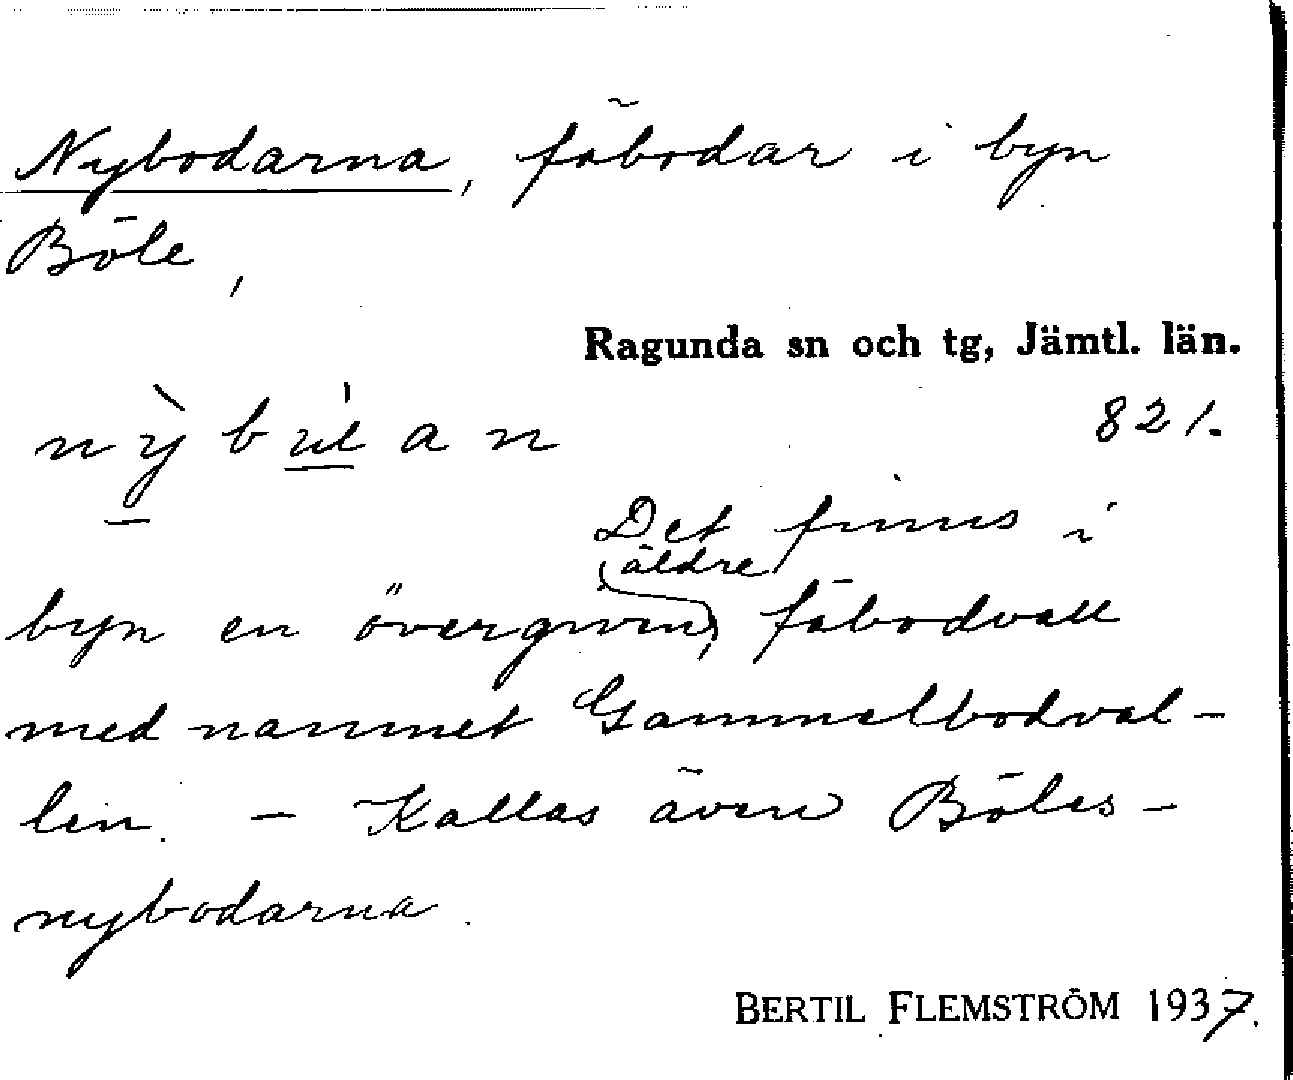 Nybodarna, fäbodar i byn
Böle,
Ragunda sn och tg, Jämtl. län.
821.
Det finns i
äldre
byn en övergiven, fäbodvall
med namnet Gammelbodval-
len. - Kallas även Böles-
nybodarna.
BERTIL FLEMSTRÖM 1937.